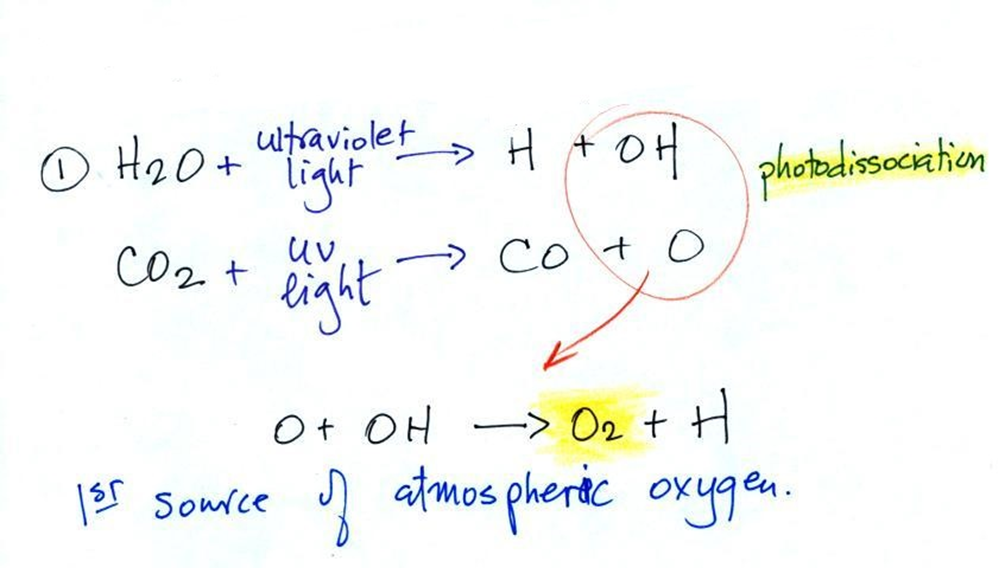 ① H2O + ultraviolet light → H + OH photodissociation
CO2 + uv light → CO + O
O + OH → O2 + H
1st source of atmospheric oxygen.